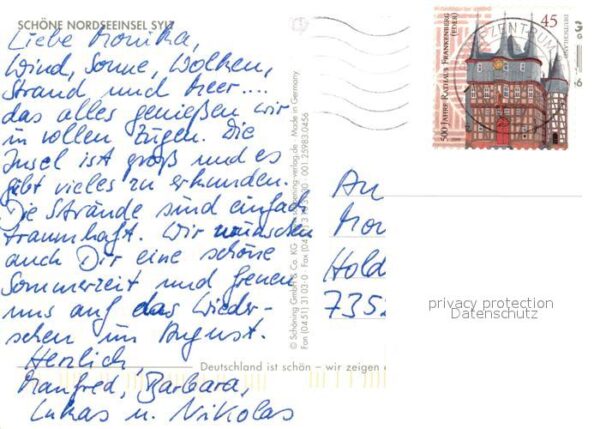 SCHÖNE NORDSEEINSEL SYLT
Liebe Monika,
Wind, Sonne, Wolken,
Strand und Meer....
das alles genießen wir
in vollen Zügen. Die
Insel ist groß und es
gibt vieles zu erkunden.
Die Strände sind einfach
traumhaft. Wir wünschen
auch Dir eine schöne
Sommerzeit und freuen
uns auf das Wieder-
sehen im August.
Herzlich
Manfred, Barbara,
Lukas u. Nikolas
Deutschland ist schön – wir zeigen
© Schöning GmbH & Co. KG
Fax (04 51) 31 03-0
001 25983.0456
Made in Germany
45
500 JAHRE RATHAUS FRANKENBERG
(EDER)
DEUTSCHLAND
ZENTRUM
An
Mon
Hold
7352
privacy protection
Datenschutz